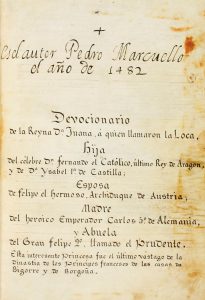 +
es el autor Pedro Marcuello
el año de 1482
Devocionario
de la Reyna Dª Juana, à quien llamaron la Loca,
Hija
del célebre Dⁿ fernando el Católico, último Rey de Aragon,
y de Dª Ysabel 1ª de Castilla;
Esposa
de felipe el hermoso, Archiduque de Austria;
Madre
del heroico Emperador Carlos 5º de Alemania,
y Abuela
del Gran felipe 2º, llamado el Prudente.
Esta interesante Princesa fue el último vastago de la
dinastia de los Principes franceses de las casas de
Bigorre y de Borgoña.